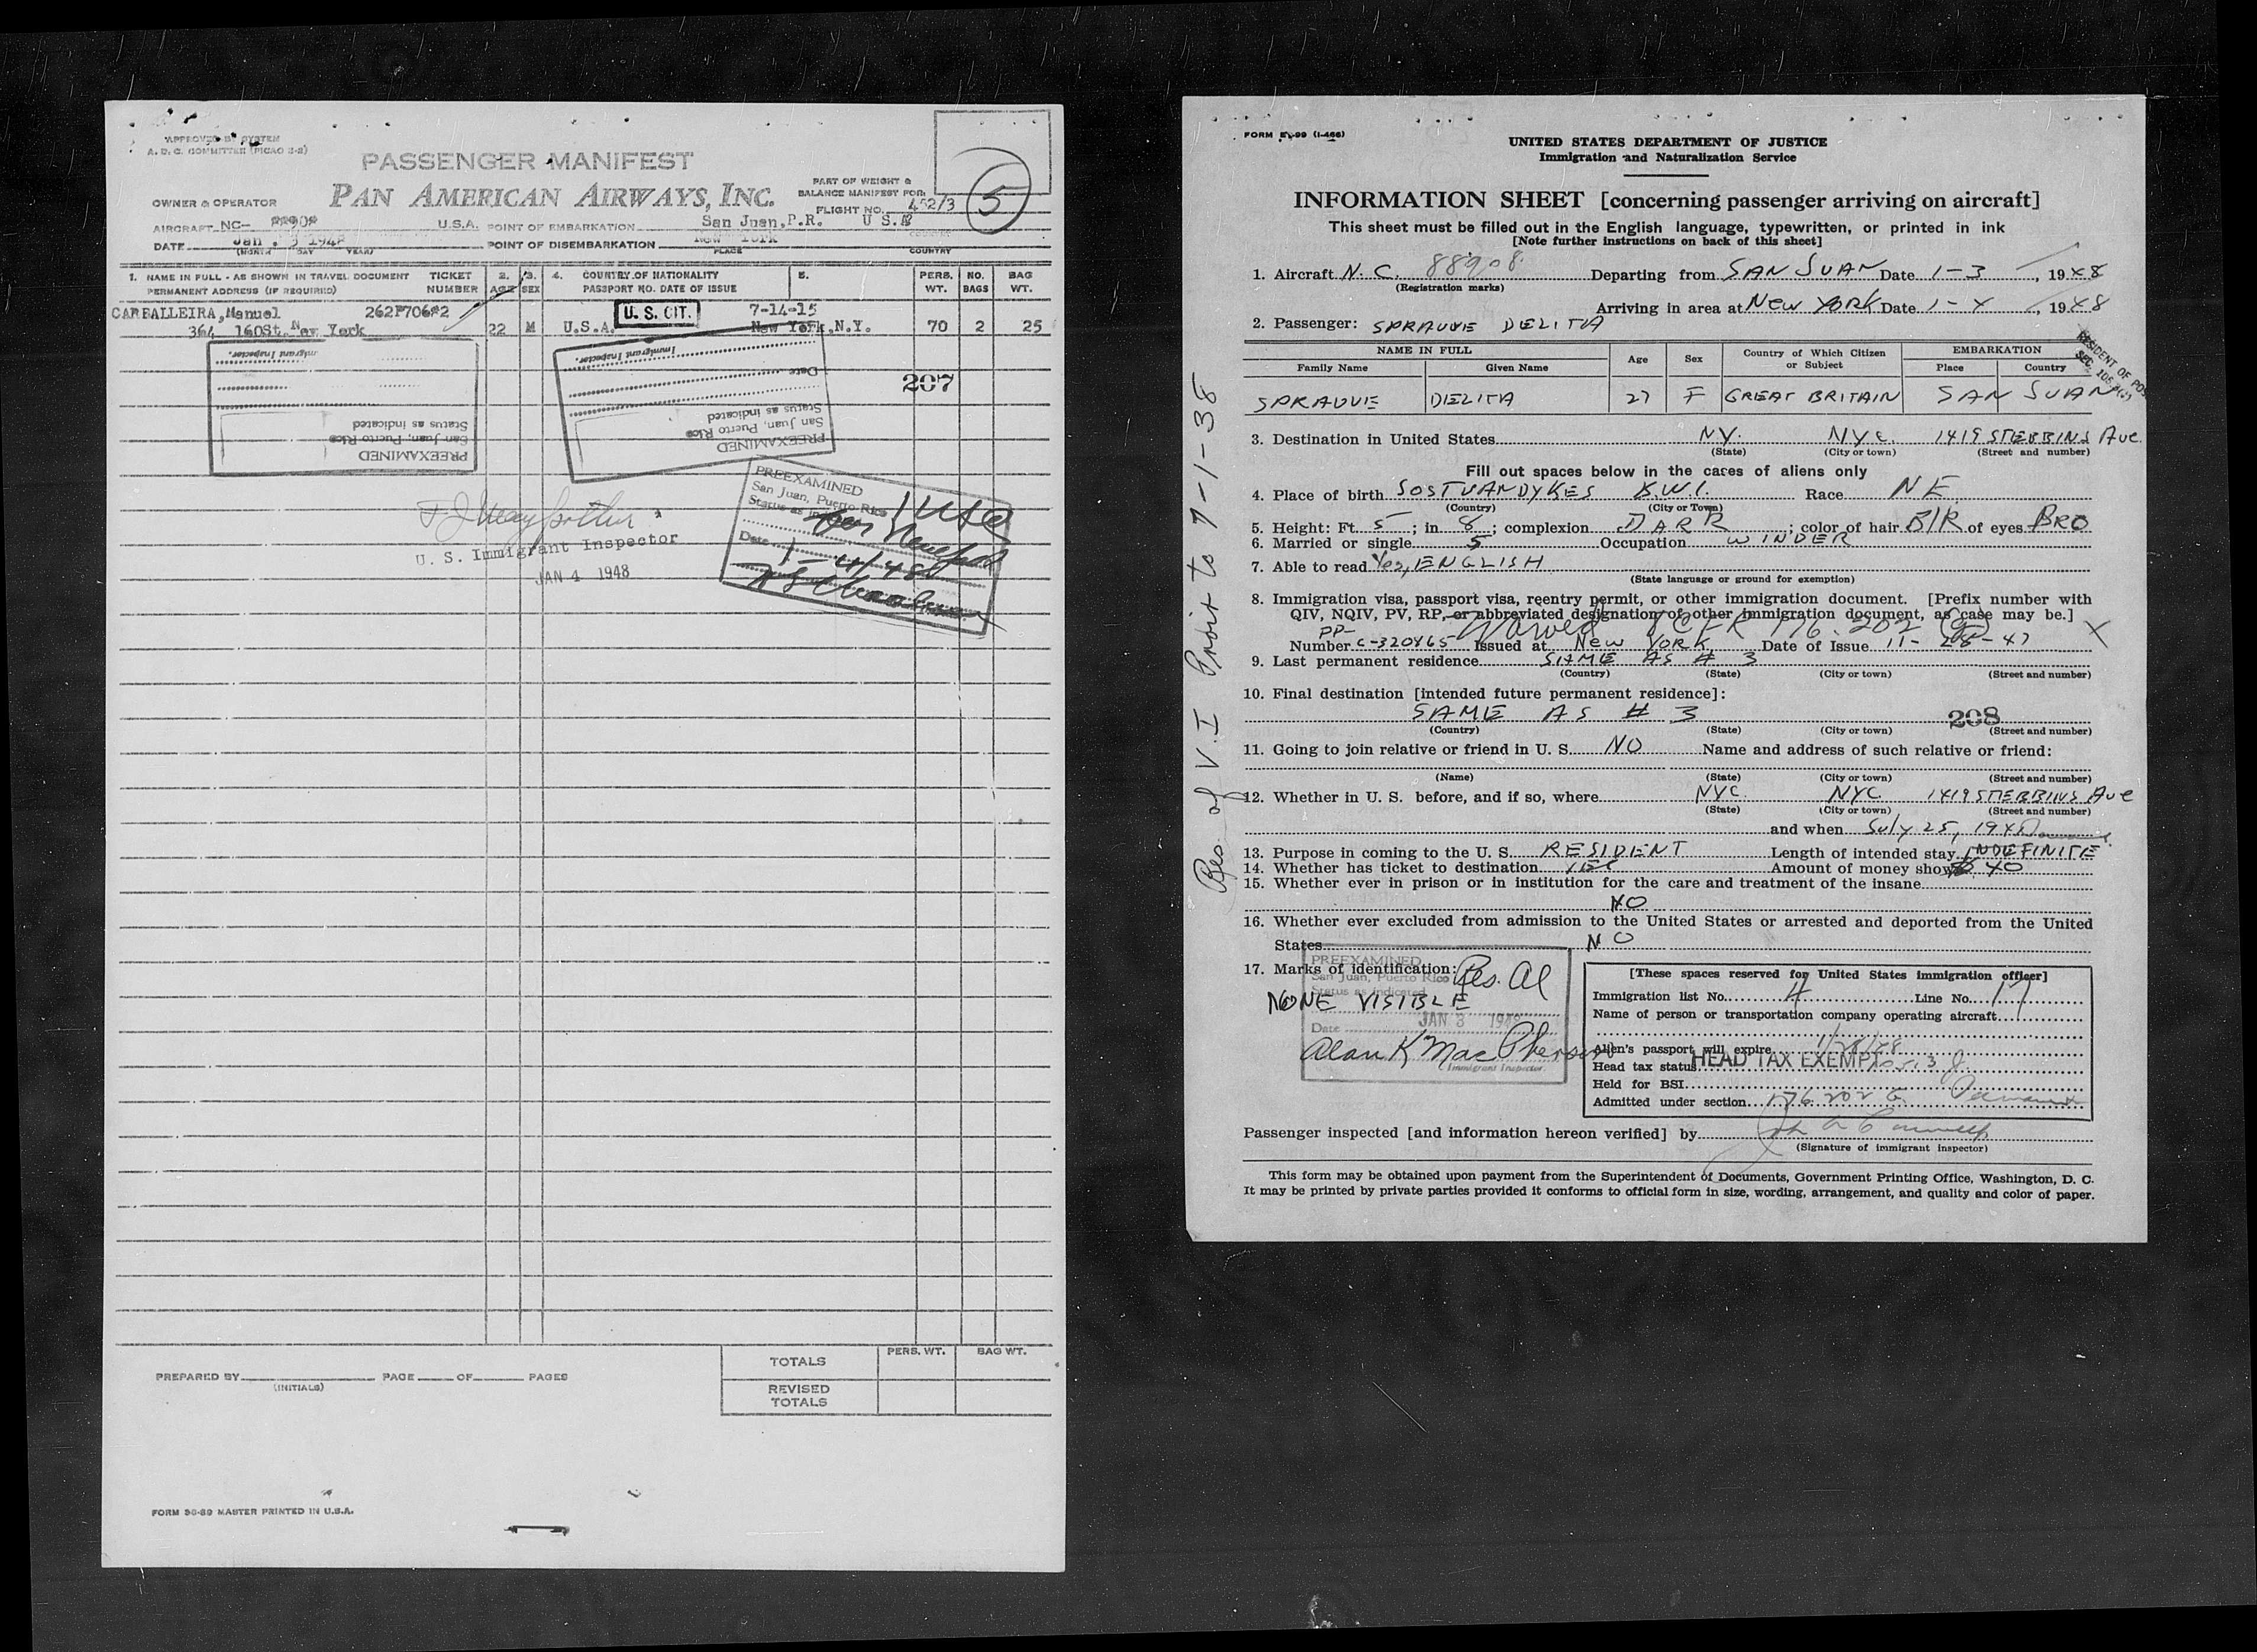 APPROVED BY SYSTEM
A. D. C. COMMITTEE (PICAO 2-2)
PASSENGER MANIFEST
PAN AMERICAN AIRWAYS, INC.
PART OF WEIGHT &
BALANCE MANIFEST FOR:
FLIGHT NO. 452/3
5
OWNER & OPERATOR
AIRCRAFT NC- 88908 U.S.A. POINT OF EMBARKATION San Juan, P.R. U S A
DATE Jan. 3 1948 POINT OF DISEMBARKATION New York
(MONTH DAY YEAR) PLACE COUNTRY
1. NAME IN FULL - AS SHOWN IN TRAVEL DOCUMENT TICKET 2. 3. 4. COUNTRY OF NATIONALITY 5. PERS. NO. BAG
PERMANENT ADDRESS (IF REQUIRED) NUMBER AGE SEX PASSPORT NO. DATE OF ISSUE WT. BAGS WT.
CARBALLEIRA, Manuel 262P70682 U. S. CIT. 7-14-15
364 160St. New York 22 M U.S.A. New York, N.Y. 70 2 25
Immigrant Inspector.
Status as indicated
San Juan, Puerto Rico
PREEXAMINED
Immigrant Inspector.
Date
Status as indicated
San Juan, Puerto Rico
PREEXAMINED
207
PREEXAMINED
San Juan, Puerto Rico
Status as indicated
USC
Date 1-4/48
U. S. Immigrant Inspector
JAN 4 1948
TOTALS PERS. WT. BAG WT.
PREPARED BY PAGE OF PAGES
(INITIALS)
REVISED
TOTALS
FORM 98-89 MASTER PRINTED IN U.S.A.
FORM (I-466)
UNITED STATES DEPARTMENT OF JUSTICE
Immigration and Naturalization Service
INFORMATION SHEET [concerning passenger arriving on aircraft]
This sheet must be filled out in the English language, typewritten, or printed in ink
[Note further instructions on back of this sheet]
1. Aircraft N. C. 88908 Departing from SAN JUAN Date 1-3, 1948
(Registration marks)
Arriving in area at NEW YORK Date 1-4, 1948
2. Passenger: SPRAUVE DELITA
RESIDENT OF POS
NAME IN FULL Age Sex Country of Which Citizen or Subject EMBARKATION
Family Name Given Name Place Country
SPRAUVE DELITA 27 F GREAT BRITAIN SAN JUAN
3. Destination in United States NY. NYC. 1419 STEBBINS Ave
(State) (City or town) (Street and number)
Fill out spaces below in the cases of aliens only
4. Place of birth JOSTVANDYKES B.W.I. Race NE
(Country) (City or Town)
5. Height: Ft. 5; in 8; complexion DARK; color of hair BlK of eyes BRO
6. Married or single S Occupation WINDER
7. Able to read Yes, ENGLISH
(State language or ground for exemption)
8. Immigration visa, passport visa, reentry permit, or other immigration document. [Prefix number with
QIV, NQIV, PV, RP, or abbreviated designation of other immigration document, as case may be.]
Waived 8 CFR 176.202 (g) X
PP-
Number C-320465 Issued at NEW YORK Date of Issue 11-28-47
9. Last permanent residence SAME AS # 3
(Country) (State) (City or town) (Street and number)
10. Final destination [intended future permanent residece]:
SAME AS # 3 208
(Country) (State) (City or town) (Street and number)
11. Going to join relative or friend in U. S. NO Name and address of such relative or friend:
(Name) (State) (City or town) (Street and number)
12. Whether in U. S. before, and if so, where NYC NYC 1419 STEBBINS Ave
(State) (City or town) (Street and number)
and when July 25, 1945
13. Purpose in coming to the U. S. RESIDENT Length of intended stay INDEFINITE
14. Whether has ticket to destination YES Amount of money show $ 40
15. Whether ever in prison or in institution for the care and treatment of the insane
NO
16. Whether ever excluded from admission to the United States or arrested and deported from the United
States NO
17. Marks of identification:
NONE VISIBLE
PREEXAMINED
San Juan, Puerto Rico
Status as indicated
Res. Al
Date JAN 3 1948
Alan K MacPherson
Immigrant Inspector.
[These spaces reserved for United States immigration officer]
Immigration list No. 4 Line No. 17
Name of person or transportation company operating aircraft
Alien's passport will expire 1/28/48
Head tax status HEAD TAX EXEMPT
Held for BSI
Admitted under section 176.202 G
Passenger inspected [and information hereon verified] by
(Signature of immigrant inspector)
This form may be obtained upon payment from the Superintendent of Documents, Government Printing Office, Washington, D. C.
It may be printed by private parties provided it conforms to official form in size, wording, arrangement, and quality and color of paper.
Res. of V.I Prior to 7-1-38